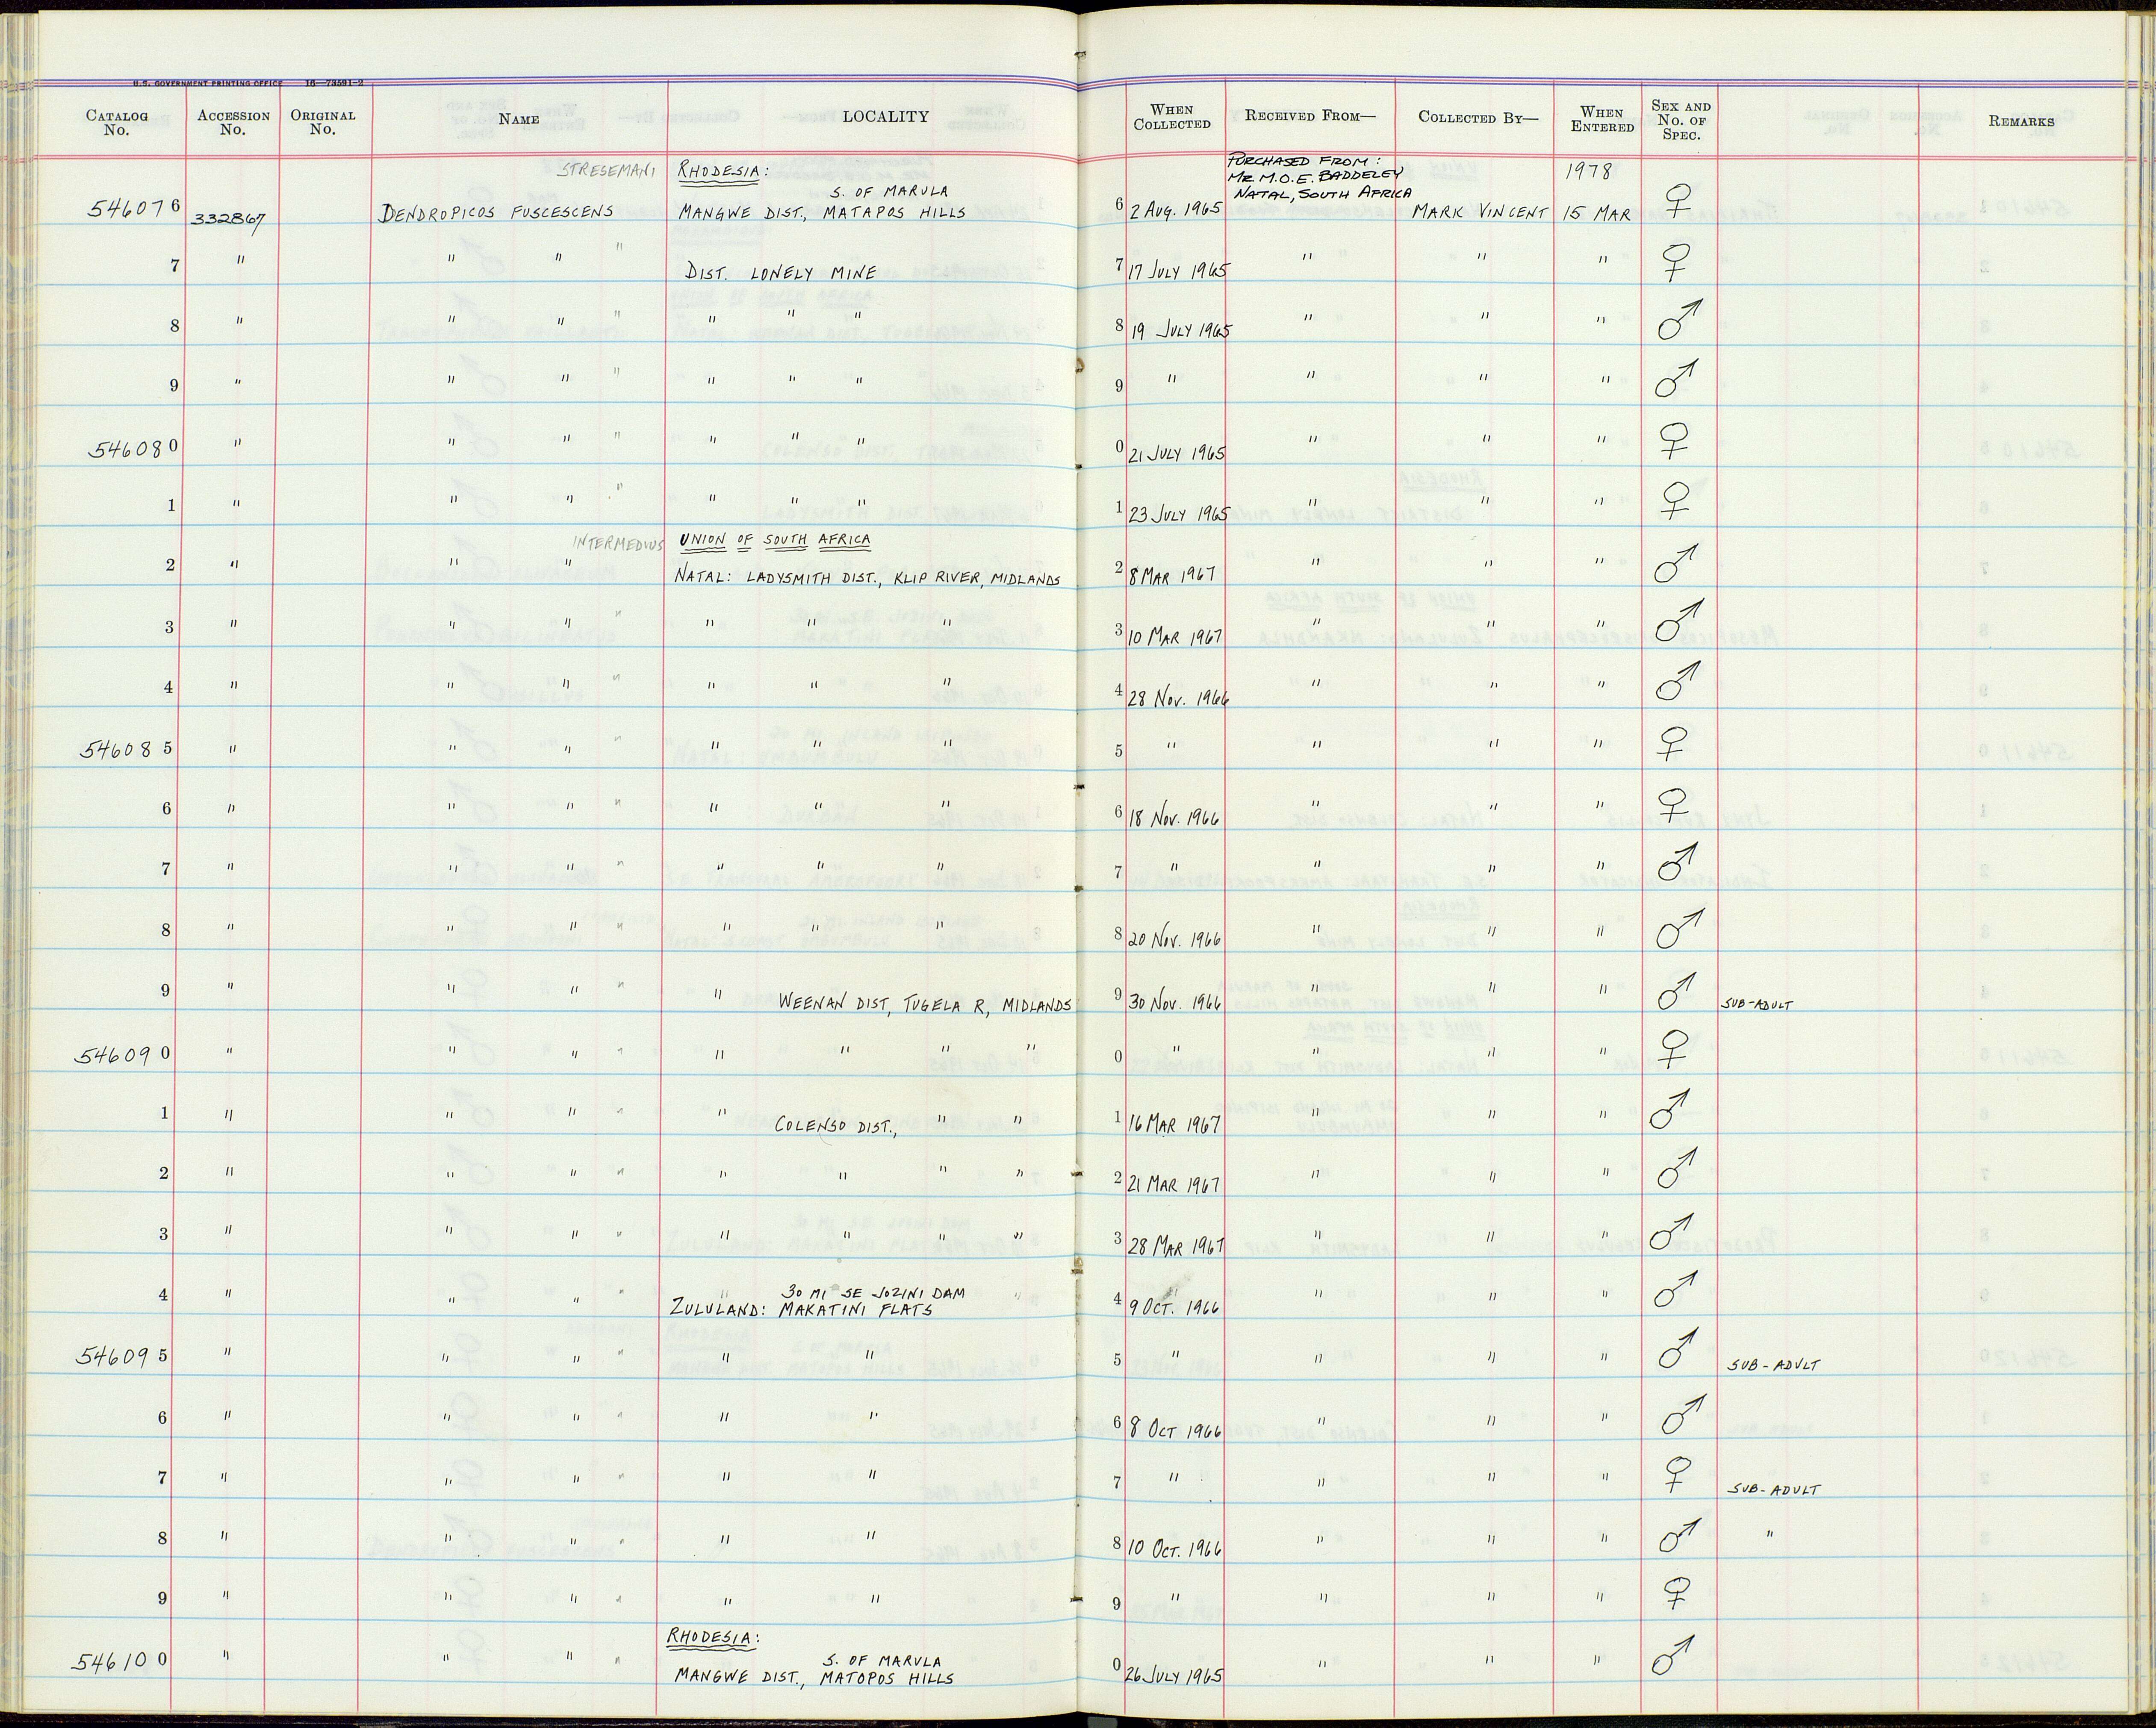 U.S. GOVERNMENT PRINTING OFFICE 16—73591-2
CATALOG No. ACCESSION No. ORIGINAL No. NAME LOCALITY WHEN COLLECTED RECEIVED FROM— COLLECTED BY— WHEN ENTERED SEX AND No. OF SPEC. REMARKS
STRESEMANI RHODESIA: PURCHASED FROM: 1978
MR M.O.E. BADDELEY
S. OF MARULA NATAL, SOUTH AFRICA
546076 332867 DENDROPICOS FUSCESCENS MANGWE DIST., MATAPOS HILLS 6 2 AUG. 1965 MARK VINCENT 15 MAR ♀
7 " " " " DIST. LONELY MINE 7 17 JULY 1965 " " " ♀
8 " " " " " " " 8 19 JULY 1965 " " " ♂
9 " " " " " " " 9 " " " " ♂
546080 " " " " " " " 0 21 JULY 1965 " " " ♀
1 " " " " " " " 1 23 JULY 1965 " " " ♀
INTERMEDIUS UNION OF SOUTH AFRICA
2 " " " NATAL: LADYSMITH DIST., KLIP RIVER, MIDLANDS 2 8 MAR 1967 " " " ♂
3 " " " " " " " 3 10 MAR 1967 " " " ♂
4 " " " " " " " 4 28 NOV. 1966 " " " ♂
546085 " " " " " " " 5 " " " " ♀
6 " " " " " " " 6 18 NOV. 1966 " " " ♀
7 " " " " " " " 7 " " " " ♂
8 " " " " " " " 8 20 NOV. 1966 " " " ♂
9 " " " " " WEENAN DIST, TUGELA R, MIDLANDS 9 30 NOV. 1966 " " " ♂ SUB-ADULT
546090 " " " " " " " " 0 " " " " ♀
1 " " " " " COLENSO DIST., " " 1 16 MAR 1967 " " " ♂
2 " " " " " " " " 2 21 MAR 1967 " " " ♂
3 " " " " " " " " 3 28 MAR 1967 " " " ♂
30 MI SE JOZINI DAM
4 " " " " ZULULAND: MAKATINI FLATS 4 9 OCT. 1966 " " " ♂
546095 " " " " " " 5 " " " " ♂ SUB-ADULT
6 " " " " " " 6 8 OCT 1966 " " " ♂
7 " " " " " " 7 " " " " ♀ SUB-ADULT
8 " " " " " " 8 10 OCT. 1966 " " " ♂ "
9 " " " " " " 9 " " " " ♀
RHODESIA:
S. OF MARULA
546100 " " " " MANGWE DIST., MATOPOS HILLS 0 26 JULY 1965 " " " ♂